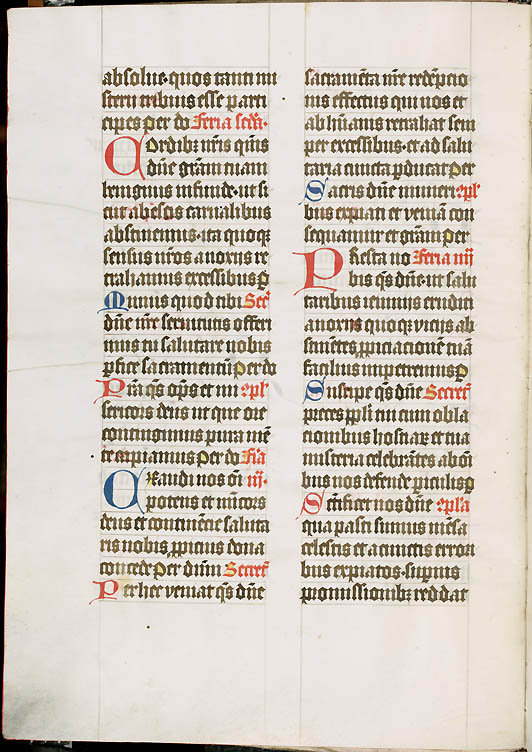 absolue· quos tanti mi
sterij tribuis esse parti
cipes Per do Feria secda·
Cordibꝫ nr̄is qm̄s
dn̄e grām tuam
benignus infunde· ut si
cut ab escis carnalibus
abstinemus· ita quoqꝫ
sensus nr̄os a noxijs re
trahamus excessibus Ꝑ
Munus quod tibi Secr̄
dn̄e nr̄e seruitutis offeri
mus tu salutare nobis
ꝑfice sacramentū Per do
Pr̄ā qs̄ op̄s et mi 9pl̄
sericors deus ut que ore
contingimus pura mē
te capiamus Per do Fīa
Exaudi nos oī iij·
potens et mīcors
deus et continēcie saluta
ris nobis ꝓpicius dona
concede Per dnm̄ Secret̄
Per hec veniat qs̄ dn̄e
sacramēta nr̄e redēpcio
nis effectus qui nos et
ab hūanis retrahat sem
per excessibus· et ad salu
taria cuncta ꝑducat Per
Sacris dn̄e muneri 9pl̄
bus expiati et veniā con
sequamur et grām Per
Presta no Feria iiij
bis qs̄ dn̄e· ut salu
taribus ieiunijs eruditi
a noxijs quoqꝫ vicijs ab
stinētes ꝓpiciacionē tuā
facilius impetremus Ꝑ
Suscipe qs̄ dn̄e Secret̄
preces ppl̄i tui cum obla
cionibus hostiaꝝ et tua
misteria celebrātes ab oī
bus nos defende ꝑiculis Ꝑ
Sctīficet nos dn̄e 9pl̄a
qua pasti sumus mēsa
celestis et a cunctis errori
bus expiatos· supnis
promissionibꝫ reddat